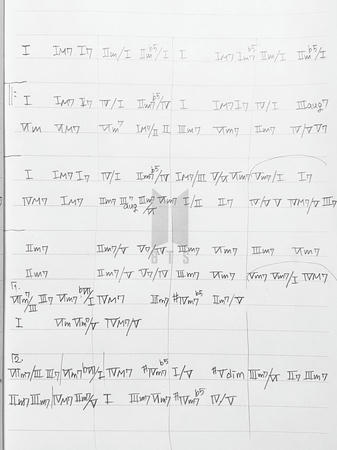 I IM7 I7 IIm/I IIm♭5/I I IM7 Im7♭5 IIm/I IIm♭5/I
I IM7 I7 IV/I IIm7♭5/IV I IM7 I7 IV/I IIIaug7
VIm VIM7 VIm7 IM7/II II IIIm7 VIm7 IIm7 IV/V V7
I IM7 I7 IV/I IIm7♭5/IV IM7/III V/V VIm7 Vm7/I I7
IVM7 IM7 IIm7 III7aug IIIm7 VIm7 I/II II7 IV/V V IVM7/V III7
IIm7 IIm7/V V7/V IIIm7 VIm7 IIIm7 VIm7
IIm7 IIm7/V V7/V IIIm7 VIm7 Vm7 Vm7/I IVM7
BTS
1.
VIm7/III III7 VIm7 /I IVM7 IIIm7 #IVm7♭5 IIm7/V
I VIm VIm7/V IVM7/V
2.
VIm7/III III7 VIm7 /I IVM7 #IVm7♭5 I/V #Vdim IIIm7/V II7 IIIm7
IIm7 IIIm7 IVM7 IIm7/V I IIIm7 VIm7 #IVm7♭5 IV/V